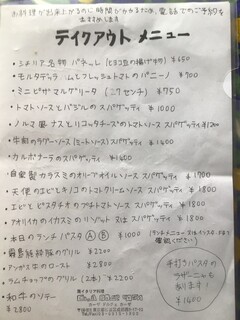 お料理が出来上がるのに時間がかかるため、電話でのご予約を
おすすめします
テイクアウト メニュー
・シチリア名物 パネッレ (ヒヨコ豆の揚げ物) ¥650
・モルタデッラハムとフレッシュトマトのパニーノ ¥900
・ミニピザマルゲリータ (17センチ) ¥750
・トマトソースとバジルのスパゲッティ ¥1000
・ノルマ風ナスとリコッタチーズのトマトソーススパゲッティ ¥1200
・牛肉のラグーソース(ミートソース)スパゲッティ ¥1400
・カルボナーラのスパゲッティ ¥1400
・自家製カラスミのオリーブオイルソース スパゲッティ ¥1700
・天使のエビとキノコのトマトクリームソース ¥1800
・エビとピスタチオのプチトマトソース スパゲッティ ¥1800
・アオリイカのイカスミのリゾット 又は スパゲッティ ¥1800
・本日のランチパスタ Ⓐ Ⓑ ¥1000
・骨付鶏の グリル ¥2200
・アンガス牛のロースト ¥2800
・ラムチョップのグリル (2本) ¥2200
・和牛のソテー
¥2800
手打ちパスタの
ラザーニャも
有ります!
¥1400
南イタリア料理